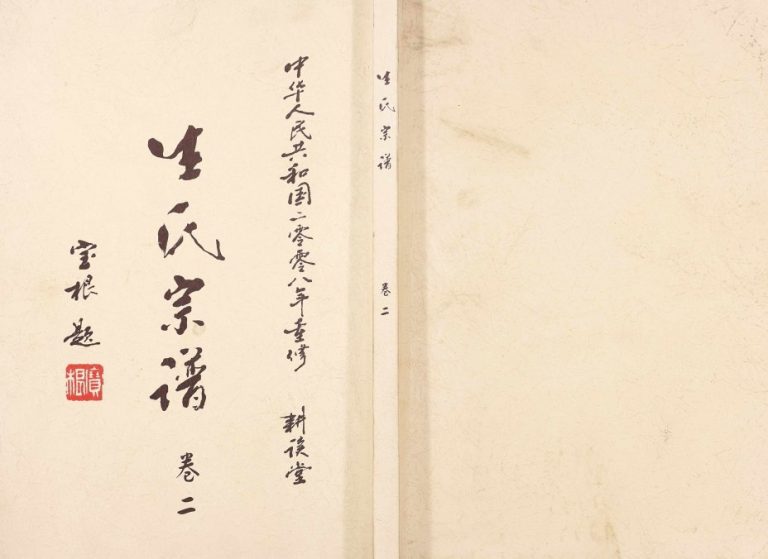 中华人民共和国二零零八年重修
耕读堂
生氏宗谱
卷二
宝根题
寶根
生氏宗谱
卷二